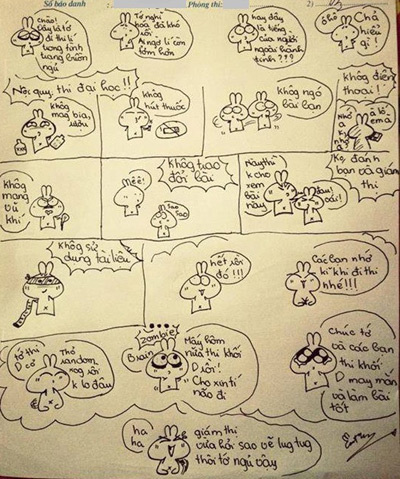 Số báo danh :
Phòng thi:
2)
chào!
Đây là tớ
đi thi lí
trong tình
trạng buồn
ngủ
Tớ nghĩ
hóa đã khó
rồi
Ai ngờ lí còn
hơn
hay đây
là tiếng
của người
ngoài hành
tinh???
ôhô
Chả
hiểu
gì!
Nội quy thi đại học!!
không
mag bia,
rượu
không
hút thuốc
không ngó
bài bạn
không điện
thoại!
Nhớ
á lô
em à
không
mang
vũ
khí
hêê!
không trao
đổi bài
Sao
Sao
Này thì
k cho
xem
bài
này
K đánh
bạn và giám
thi
đau!
oái!
không sử
dụng tài liệu
hết rồi
đó!!!
Các bạn nhớ
kĩ khi đi thi
nhé!!!
tớ thi
D cơ
Thỏ
random
xog rồi
k lo đâu
zombie
Brain
Mấy hôm
nữa thi khối
D rồi!
Cho xin tí
não đi
Chúc tớ
và các bạn
thi khối
D may mắn
và làm bài
tốt
ha
ha
giám thi
vừa hỏi sao vẽ lug tug
thôi tớ ngủ vậy